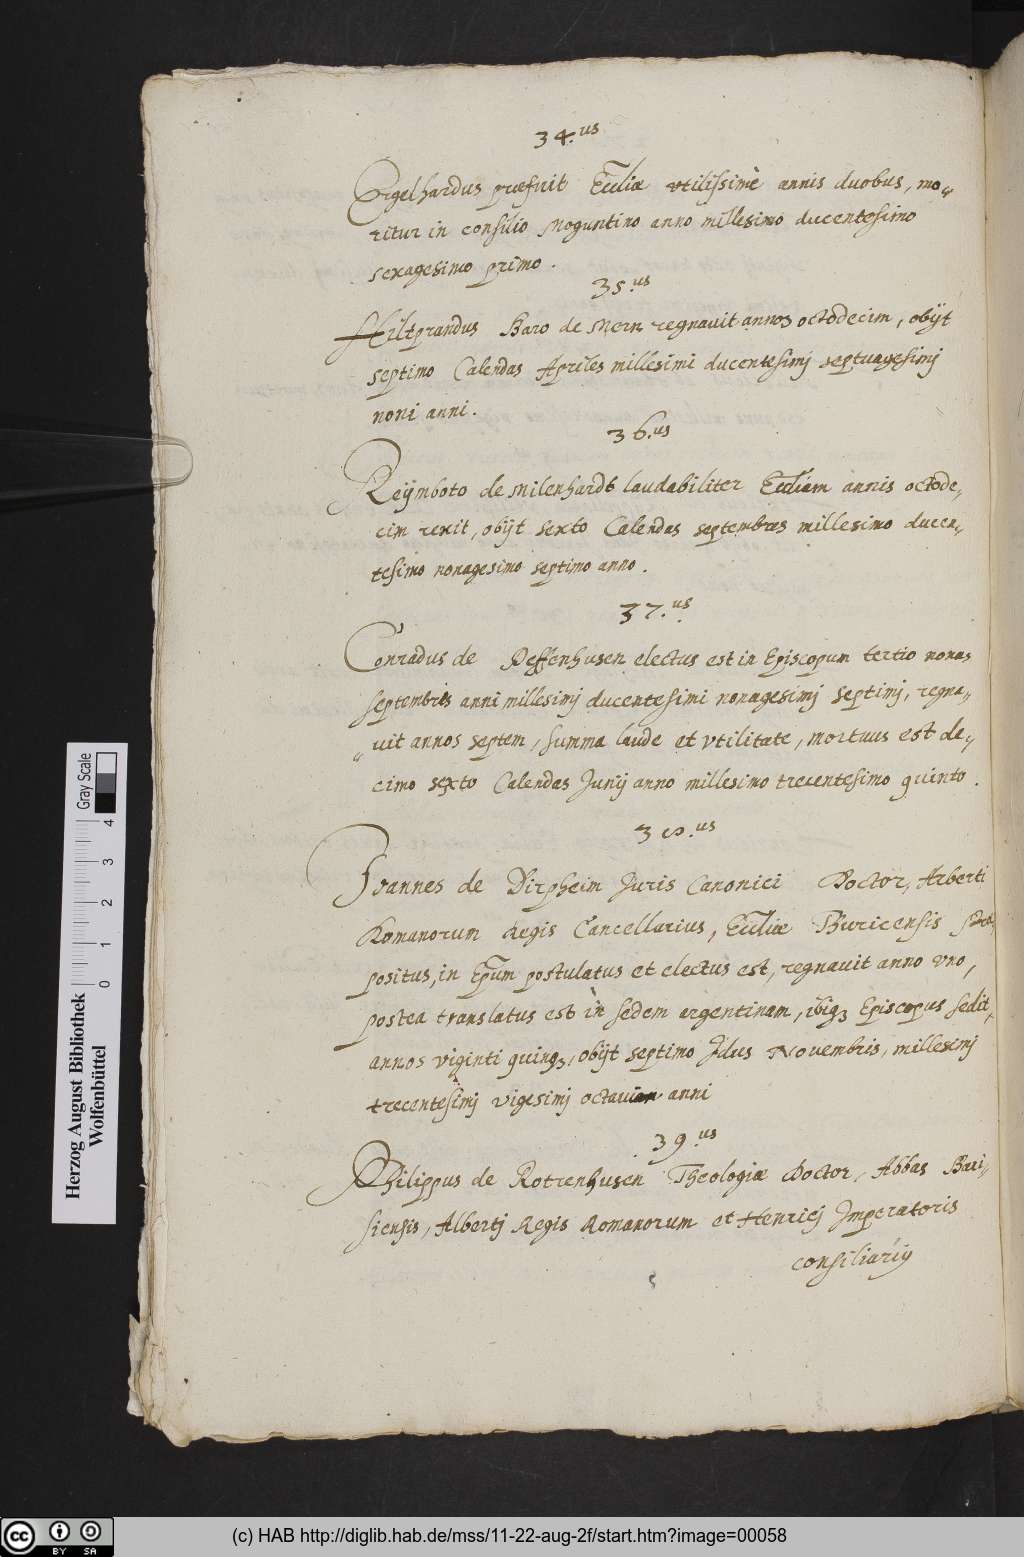 34.us
Engelhardus præfuit Eccliæ vtilissimè annis duobus, mo„
ritur in consilio Moguntino anno millesimo ducentesimo
sexagesimo primo.
35.us
Hiltprandus Baro de Mern regnauit annos octodecim, obijt
septimo Calendas Apriles millesimi ducentesimj septuagesimj
noni anni.
36.us
Reijmboto de Milenhardt laudabiliter Eccliam annis octode„
cim rexit, obijt sexto Calendas septembres millesimo ducen„
tesimo nonagesimo septimo anno.
37.us
Conradus de Peffenhusen electus est in Episcopum tertio nonas
septembris anni millesimj ducentesimi nonagesimj septimj, regna„
„uit annos septem, summa laude et vtilitate, mortuus est de„
cimo sexto Calendas Junij anno millesimo trecentesimo quinto.
38.us
Joannes de Dirpheim Juris Canonici Doctor, Arberti
Romanorum Regis Cancellarius, Eccliæ Thuricensis Præ„
positus, in Epum postulatus et electus est, regnauit anno vno,
postea translatus est in sedem argentinam, ibiq3 Episcopus sedit,
annos viginti quinq3, obijt septimo Jdus Novembris, millesimj
trecentesimj vigesimj octaui anni
39.us
Philippus de Rotzenhusen Theologiæ Doctor, Abbas Bari„
siensis, Albertj Regis Romanorum et Henricj Jmperatoris
consiliarij
Herzog August Bibliothek
Wolfenbüttel
0 1 2 3 4
Gray Scale
cc BY SA
(c) HAB http://diglib.hab.de/mss/11-22-aug-2f/start.htm?image=00058